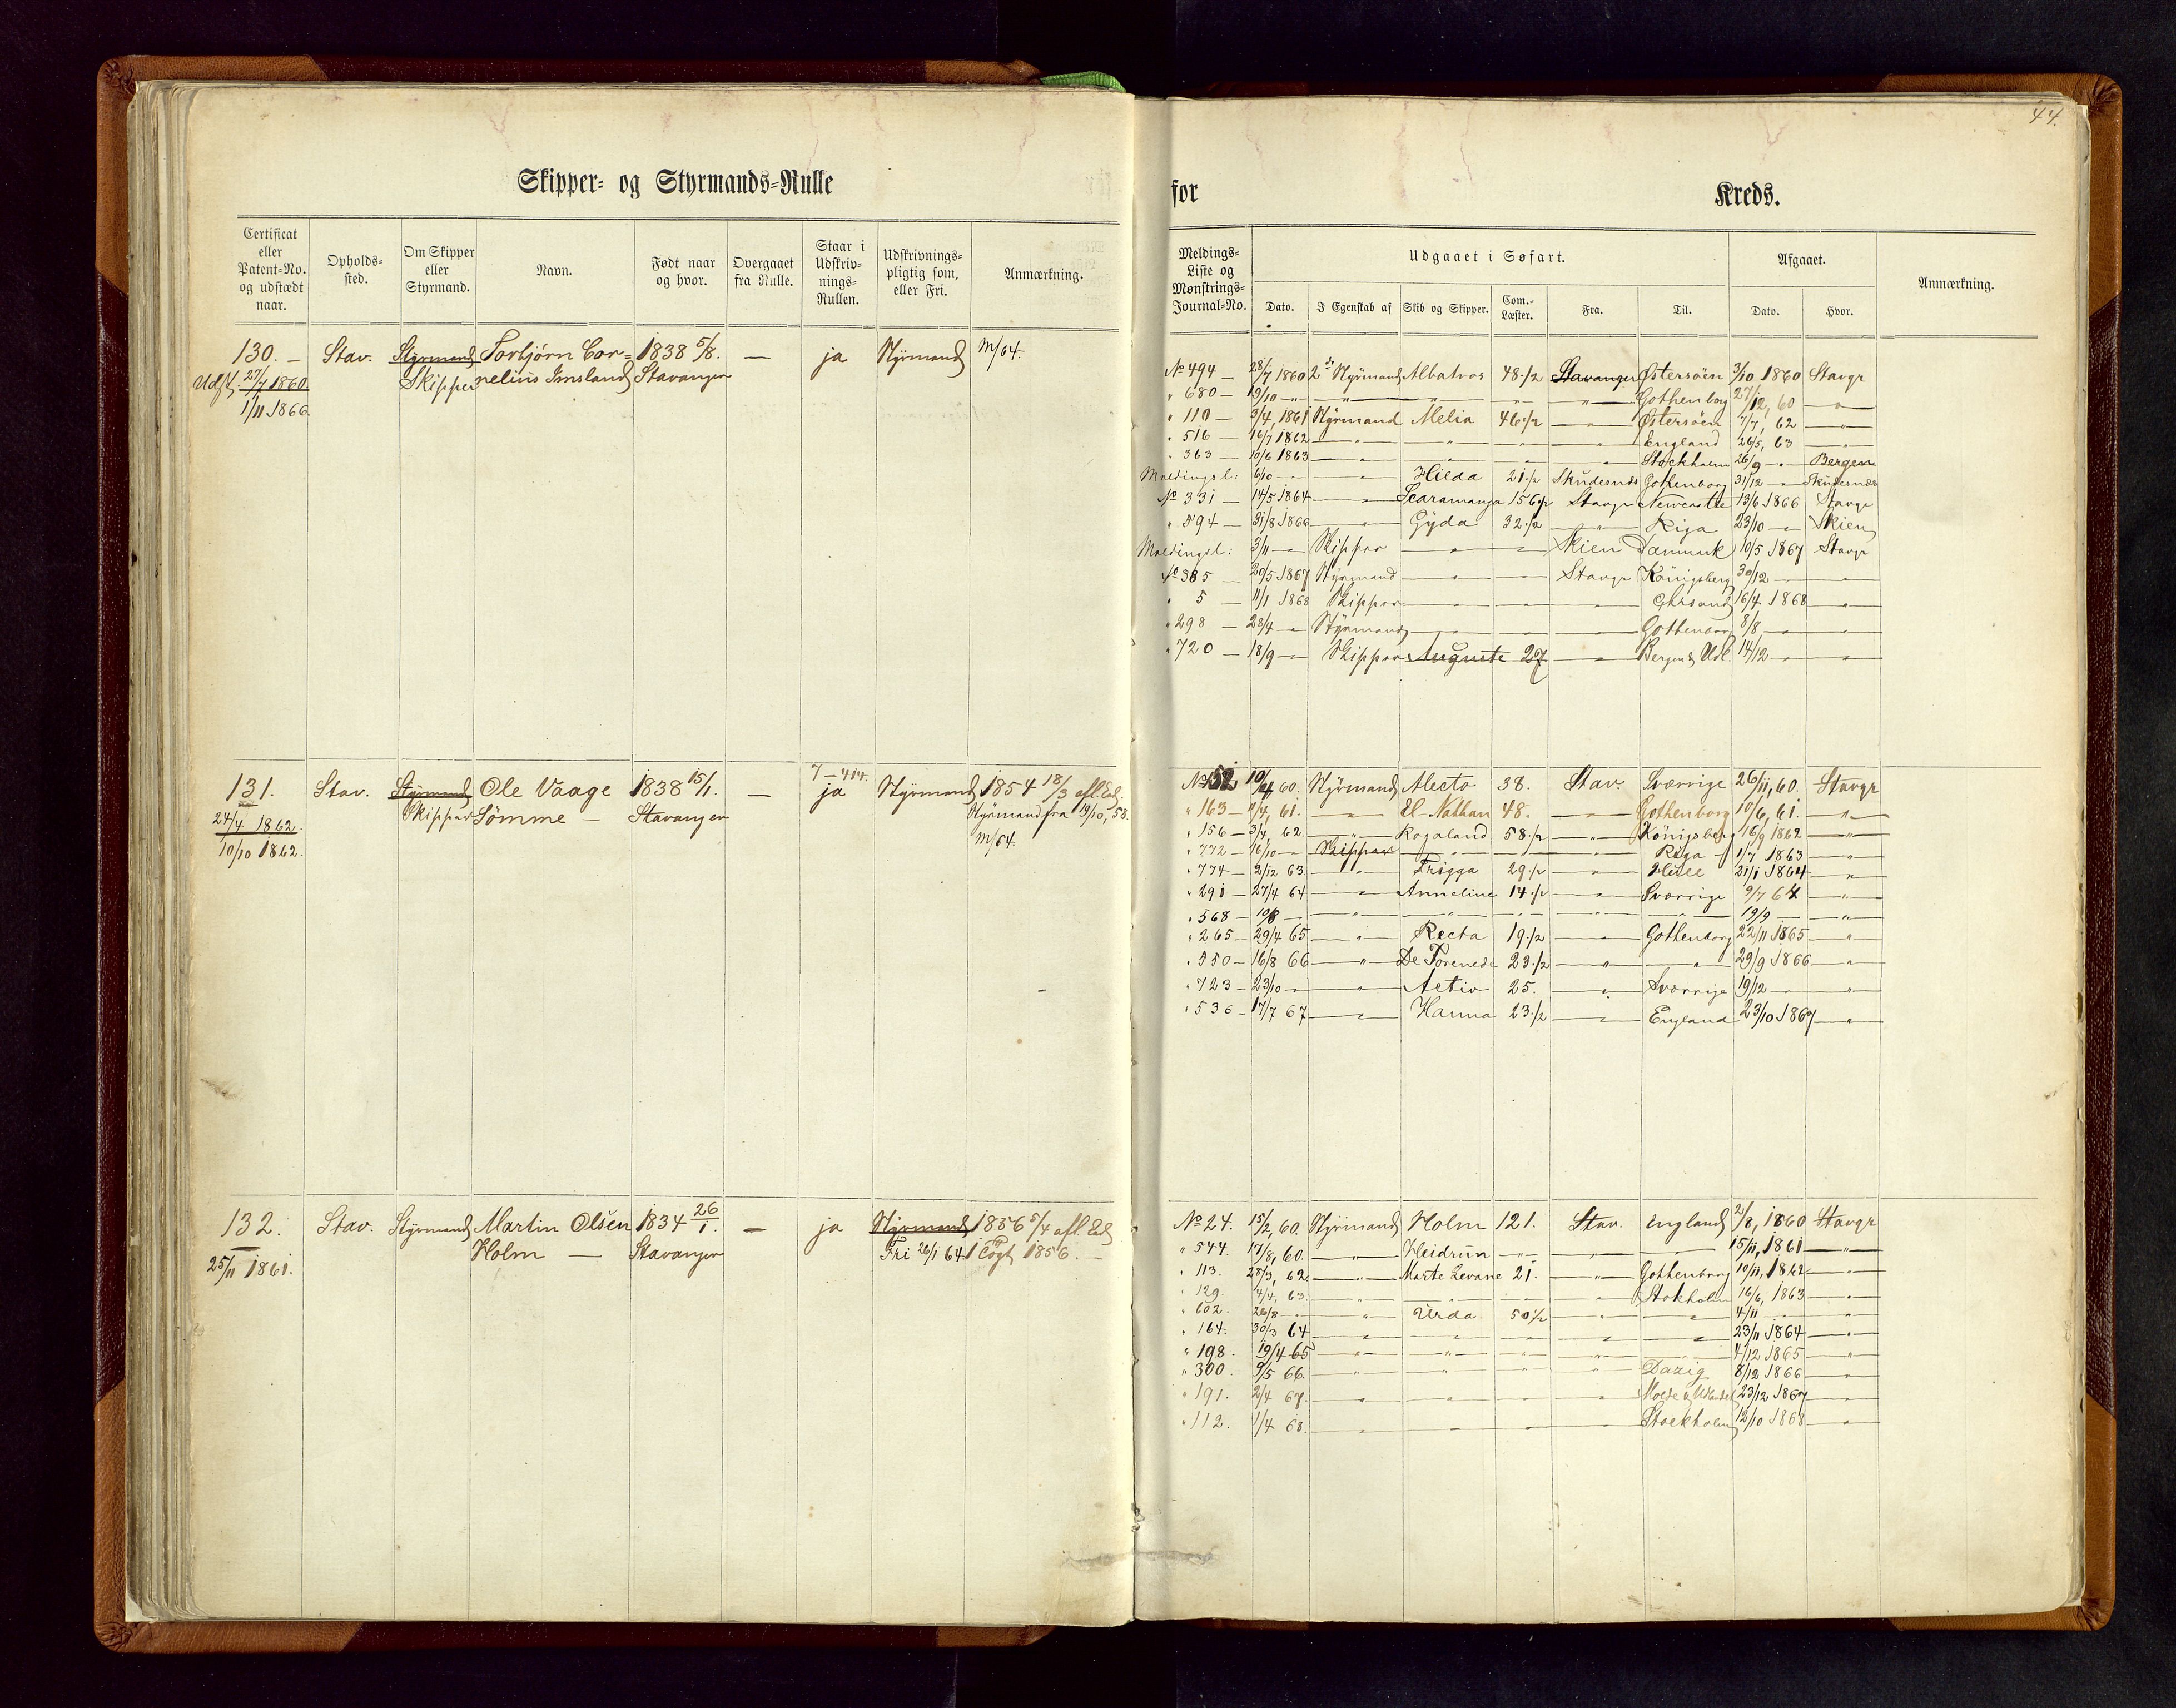 44.
Skipper- og Styrmands-Rulle
for Kreds.
Certificat eller Patent-No. og udstædt naar.
Opholds-sted.
Om Skipper eller Styrmand.
Navn.
Født naar og hvor.
Overgaaet fra Rulle.
Staar i Udskriv-nings-Rullen.
Udskrivnings-pligtig som, eller Fri.
Anmærkning.
Meldings-Liste og Mønstrings-Journal-No.
Udgaaet i Søfart.
Dato.
I Egenskab af
Skib og Skipper.
Com.-Læster.
Fra.
Til.
Afgaaet.
Dato.
Hvor.
Anmærkning.
130. — Stav. Styrmand Torbjørn Cor= 1838 5/8. — ja Styrmand M/64.
Udst. 27/7 1860. Skipper nelius Imsland Stavanger
1/11 1866.
No 494 — 28/7 1860 2de Styrmand Albatros 48 1/2 Stavanger Østersöen 3/10 1860 Stavgr
" 680 — 19/10 — " — " — " — " — " Gothenborg 27/12, 60 — "
" 110 — 3/4, 1861 Styrmand Melia 46 1/2 — " Østersöen 7/7, 62 — "
" 516 — 16/7 1862 — " — " — " — " England 26/5, 63 — "
" 363 — 10/6 1863 — " — " — " — " Stockholm 26/9 — " Bergen
Meldingsl: 6/10 — " — " Hilda 21 1/2 Skudesnds Gothenborg 31/12 — " Skudesnds
No 331 — 14/5 1864 — " Scaramanga 156 1/2 Stavgr Newcastle 13/6 1866 Stavgr
" 594 — 31/8 1866 — " Gyda 32 1/2 — " Riga 23/10 — " Skien
Meldingsl: 3/11 — " Skipper — " — " Skien Danmark 10/5 1867 Stavgr
No 385 — 20/5 1867 Styrmand — " — " Stavgr Königsberg 30/12 — " — "
" 5 — 11/1 1868 Skipper — " — " — " Chrsand 16/4 1868 — "
" 298 — 28/4 — " Styrmand — " — " — " Gothenborg 8/8 — " — "
" 720 — 18/9 — " Skipper Auguste 27 — " Bergen & Udl. 14/12 — " — "
131. Stav. Styrmand Ole Vaage 1838 15/1. — 7 — 414. ja Styrmand 1854 18/3 afl. Ed.
24/4 1862. Skipper Sömme — Stavanger Styrmand fra 19/10, 58.
10/10 1862. M/64.
No 10/4 60. Styrmand Alecto 38. Stav. Sværrige 26/11, 60. Stavgr
" 163 — 11/4, 61. — " El Nathan 48. — " Gothenborg 10/6, 61. — "
" 156 — 3/4, 62. — " Rogaland 58 1/2 — " Königsberg 16/9 1862 — "
" 772 — 16/10 — " Skipper — " — " — " Riga 1/7 1863 — "
" 774 — 2/12 63. — " Frigga 29 1/2 — " Hull 21/1 1864 — "
" 291 — 27/4 64 — " Anneline 14 1/2 — " Sværrige 9/7 64 — "
" 568 — 10/8 — " — " — " — " — " — " 19/9 — " — "
" 265 — 29/4 65 — " Recta 19 1/2 — " Gothenborg 22/11 1865 — "
" 550 — 16/8 66 — " De Forenede 23 1/2 — " — " 29/9 1866 — "
" 723 — 23/10 — " — " Activ 25. — " Sværrige 19/12 — " — "
" 536 — 17/7 67 — " Hanna 23 1/2 — " England 23/10 1867 — "
132. Stav. Styrmand Martin Olsen 1834 26/1. — ja Styrmand 1856 5/4 afl. Ed
25/11 1861. Holm — Stavanger Fri 26/1 64. 1 Togt 1856. —
No 24. 15/2, 60. Styrmand Holm 121. Stav. England 2/8, 1860 Stavgr
" 544. 17/8, 60. — " Heidrun — " — " — " 15/11, 1861 — "
" 113. 28/3, 62 — " Marte Levane 21. — " Gothenborg 10/11, 1862 — "
" 129. 4/4, 63. — " — " — " — " Stokholm 16/6, 1863 — "
" 602. 26/8 — " — " Urda 50 1/2 — " — " 4/11 — " — "
" 164. 30/3 64 — " — " — " — " — " 23/11 1864 — "
" 198. 19/4 65 — " — " — " — " — " 4/12 1865 — "
" 300. 9/5 66. — " — " — " — " Dazig 8/12 1866 — "
" 191. 2/4 67. — " — " — " — " Molde & 23/12 1867 — "
" 112. 1/4 68. — " — " — " — " Stockholm 12/10 1868 — "